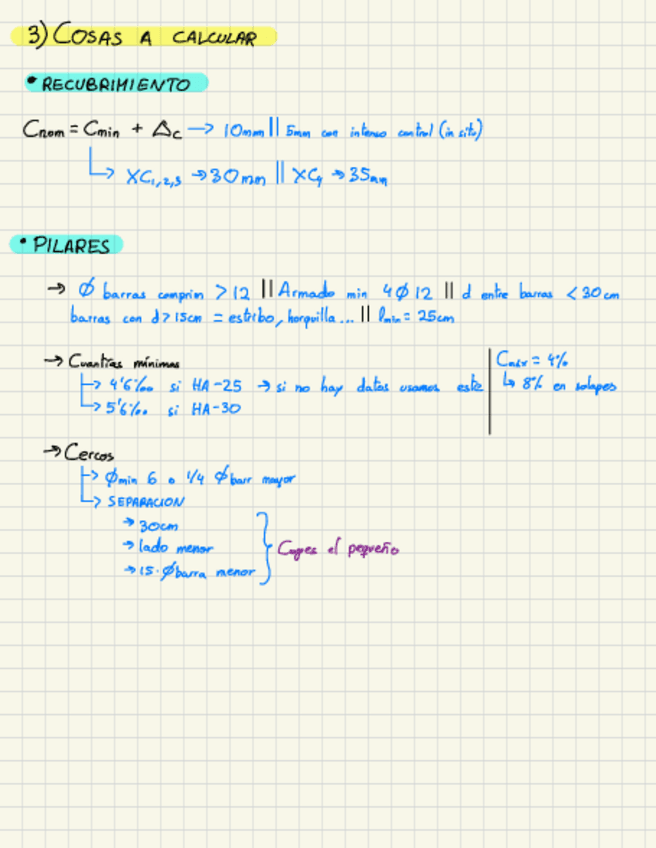 3) COSAS A CALCULAR
• RECUBRIMIENTO
Cnom = Cmin + Δc → 10mm || 5mm con intenso control (in situ)
↳ XC1,2,3 → 30mm || XC4 → 35mm
• PILARES
→ Ø barras comprim > 12 || Armado min 4Ø12 || d entre barras < 30cm
barras con d > 15cm = estribo, horquilla... || lmin = 25cm
→ Cuantías mínimas
↳ 4'6‰ si HA-25 → si no hay datos usamos este
↳ 5'6‰ si HA-30
Cmáx = 4%
↳ 8% en solapes
→ Cercos
↳ Ømin 6 o 1/4 Øbarr mayor
↳ SEPARACION
→ 30cm
→ lado menor
→ 15·Øbarra menor
Coges el pequeño